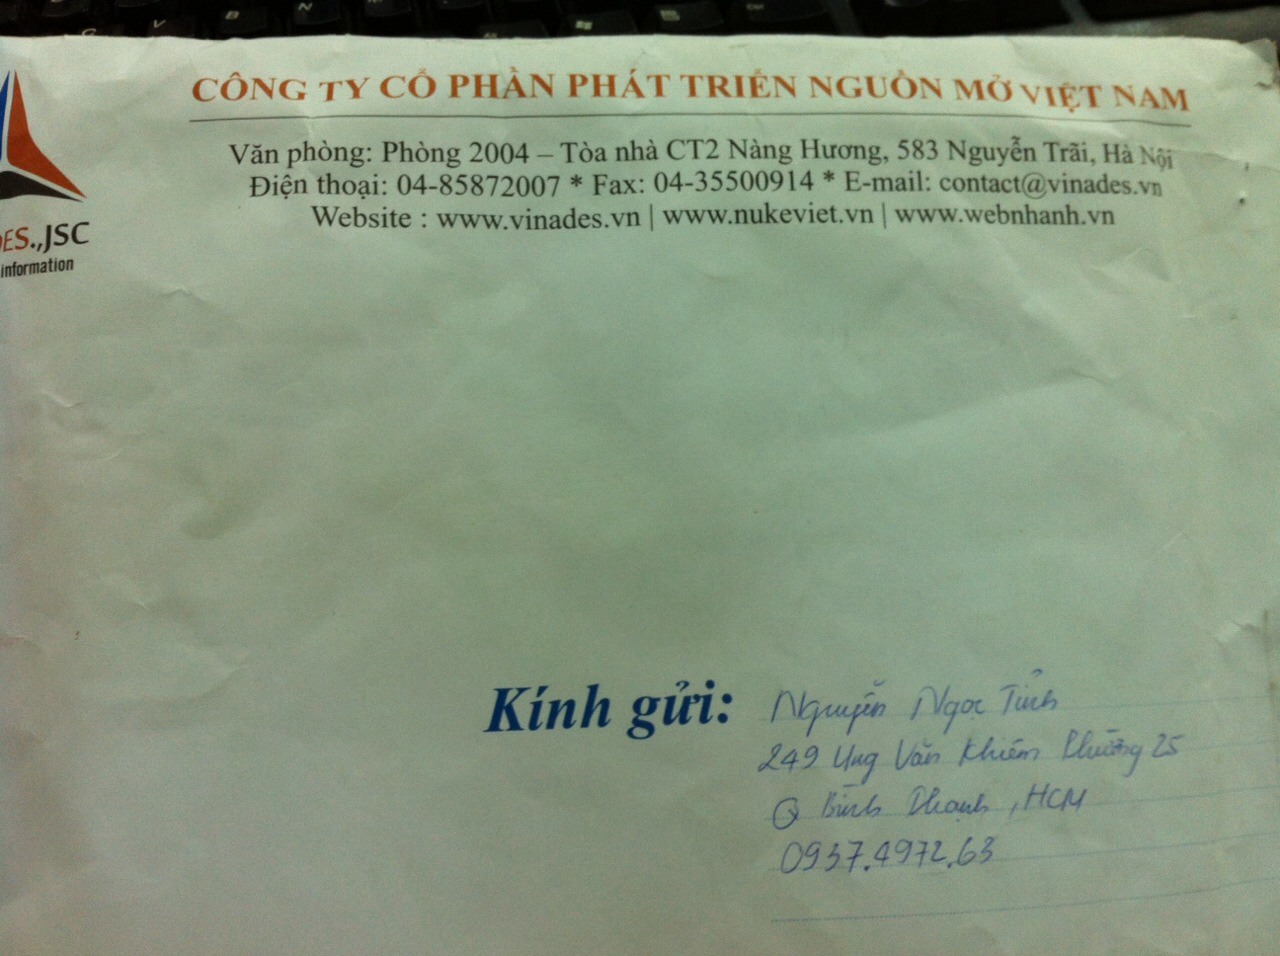 CÔNG TY CỔ PHẦN PHÁT TRIỂN NGUỒN MỞ VIỆT NAM
Văn phòng: Phòng 2004 – Tòa nhà CT2 Nàng Hương, 583 Nguyễn Trãi, Hà Nội
Điện thoại: 04-85872007 * Fax: 04-35500914 * E-mail: contact@vinades.vn
Website : www.vinades.vn | www.nukeviet.vn | www.webnhanh.vn
DES.,JSC
information
Kính gửi: Nguyễn Ngọc Tỉnh
249 Ung Văn Khiêm Phường 25
Q Bình Thạnh, HCM
0937.4972.63